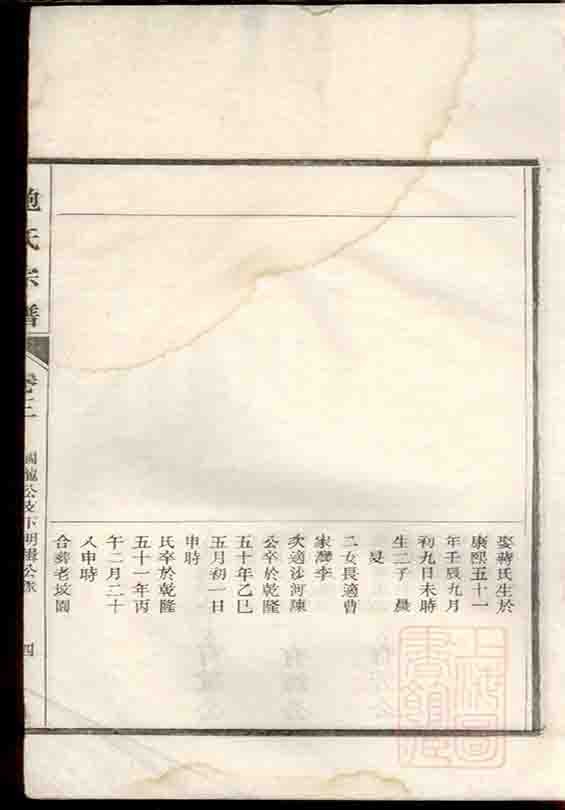 娶蔣氏生於
康熙五十一
年壬辰九月
初九日未時
生二子 晨
旻
二女長適曹
家灣李
次適沙河陳
公卒於乾隆
五十年乙巳
五月初一日
申時
氏卒於乾隆
五十一年丙
午二月二十
乂申時
合葬老坟園
鮑氏宗譜
卷二
四
上海圖書館藏